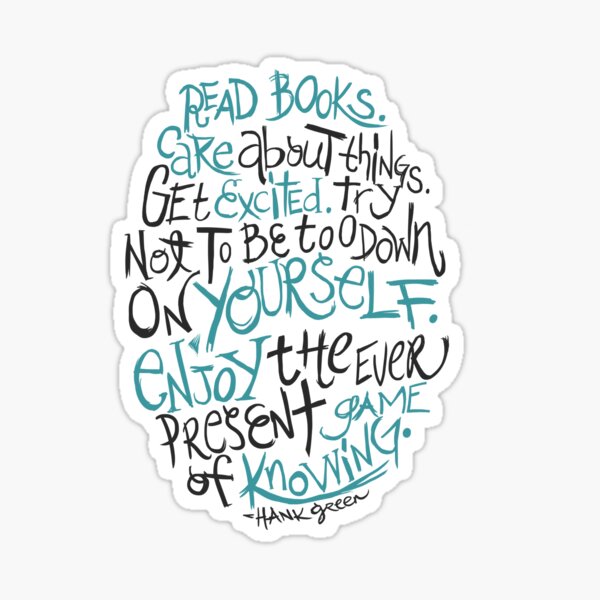 READ BOOKS.
Care about things.
GEt Excited. try
Not To BE too Down
ON YOURSELF.
ENJOY the EVER
PRESENT GAME
of KNOWING.
-HANK green